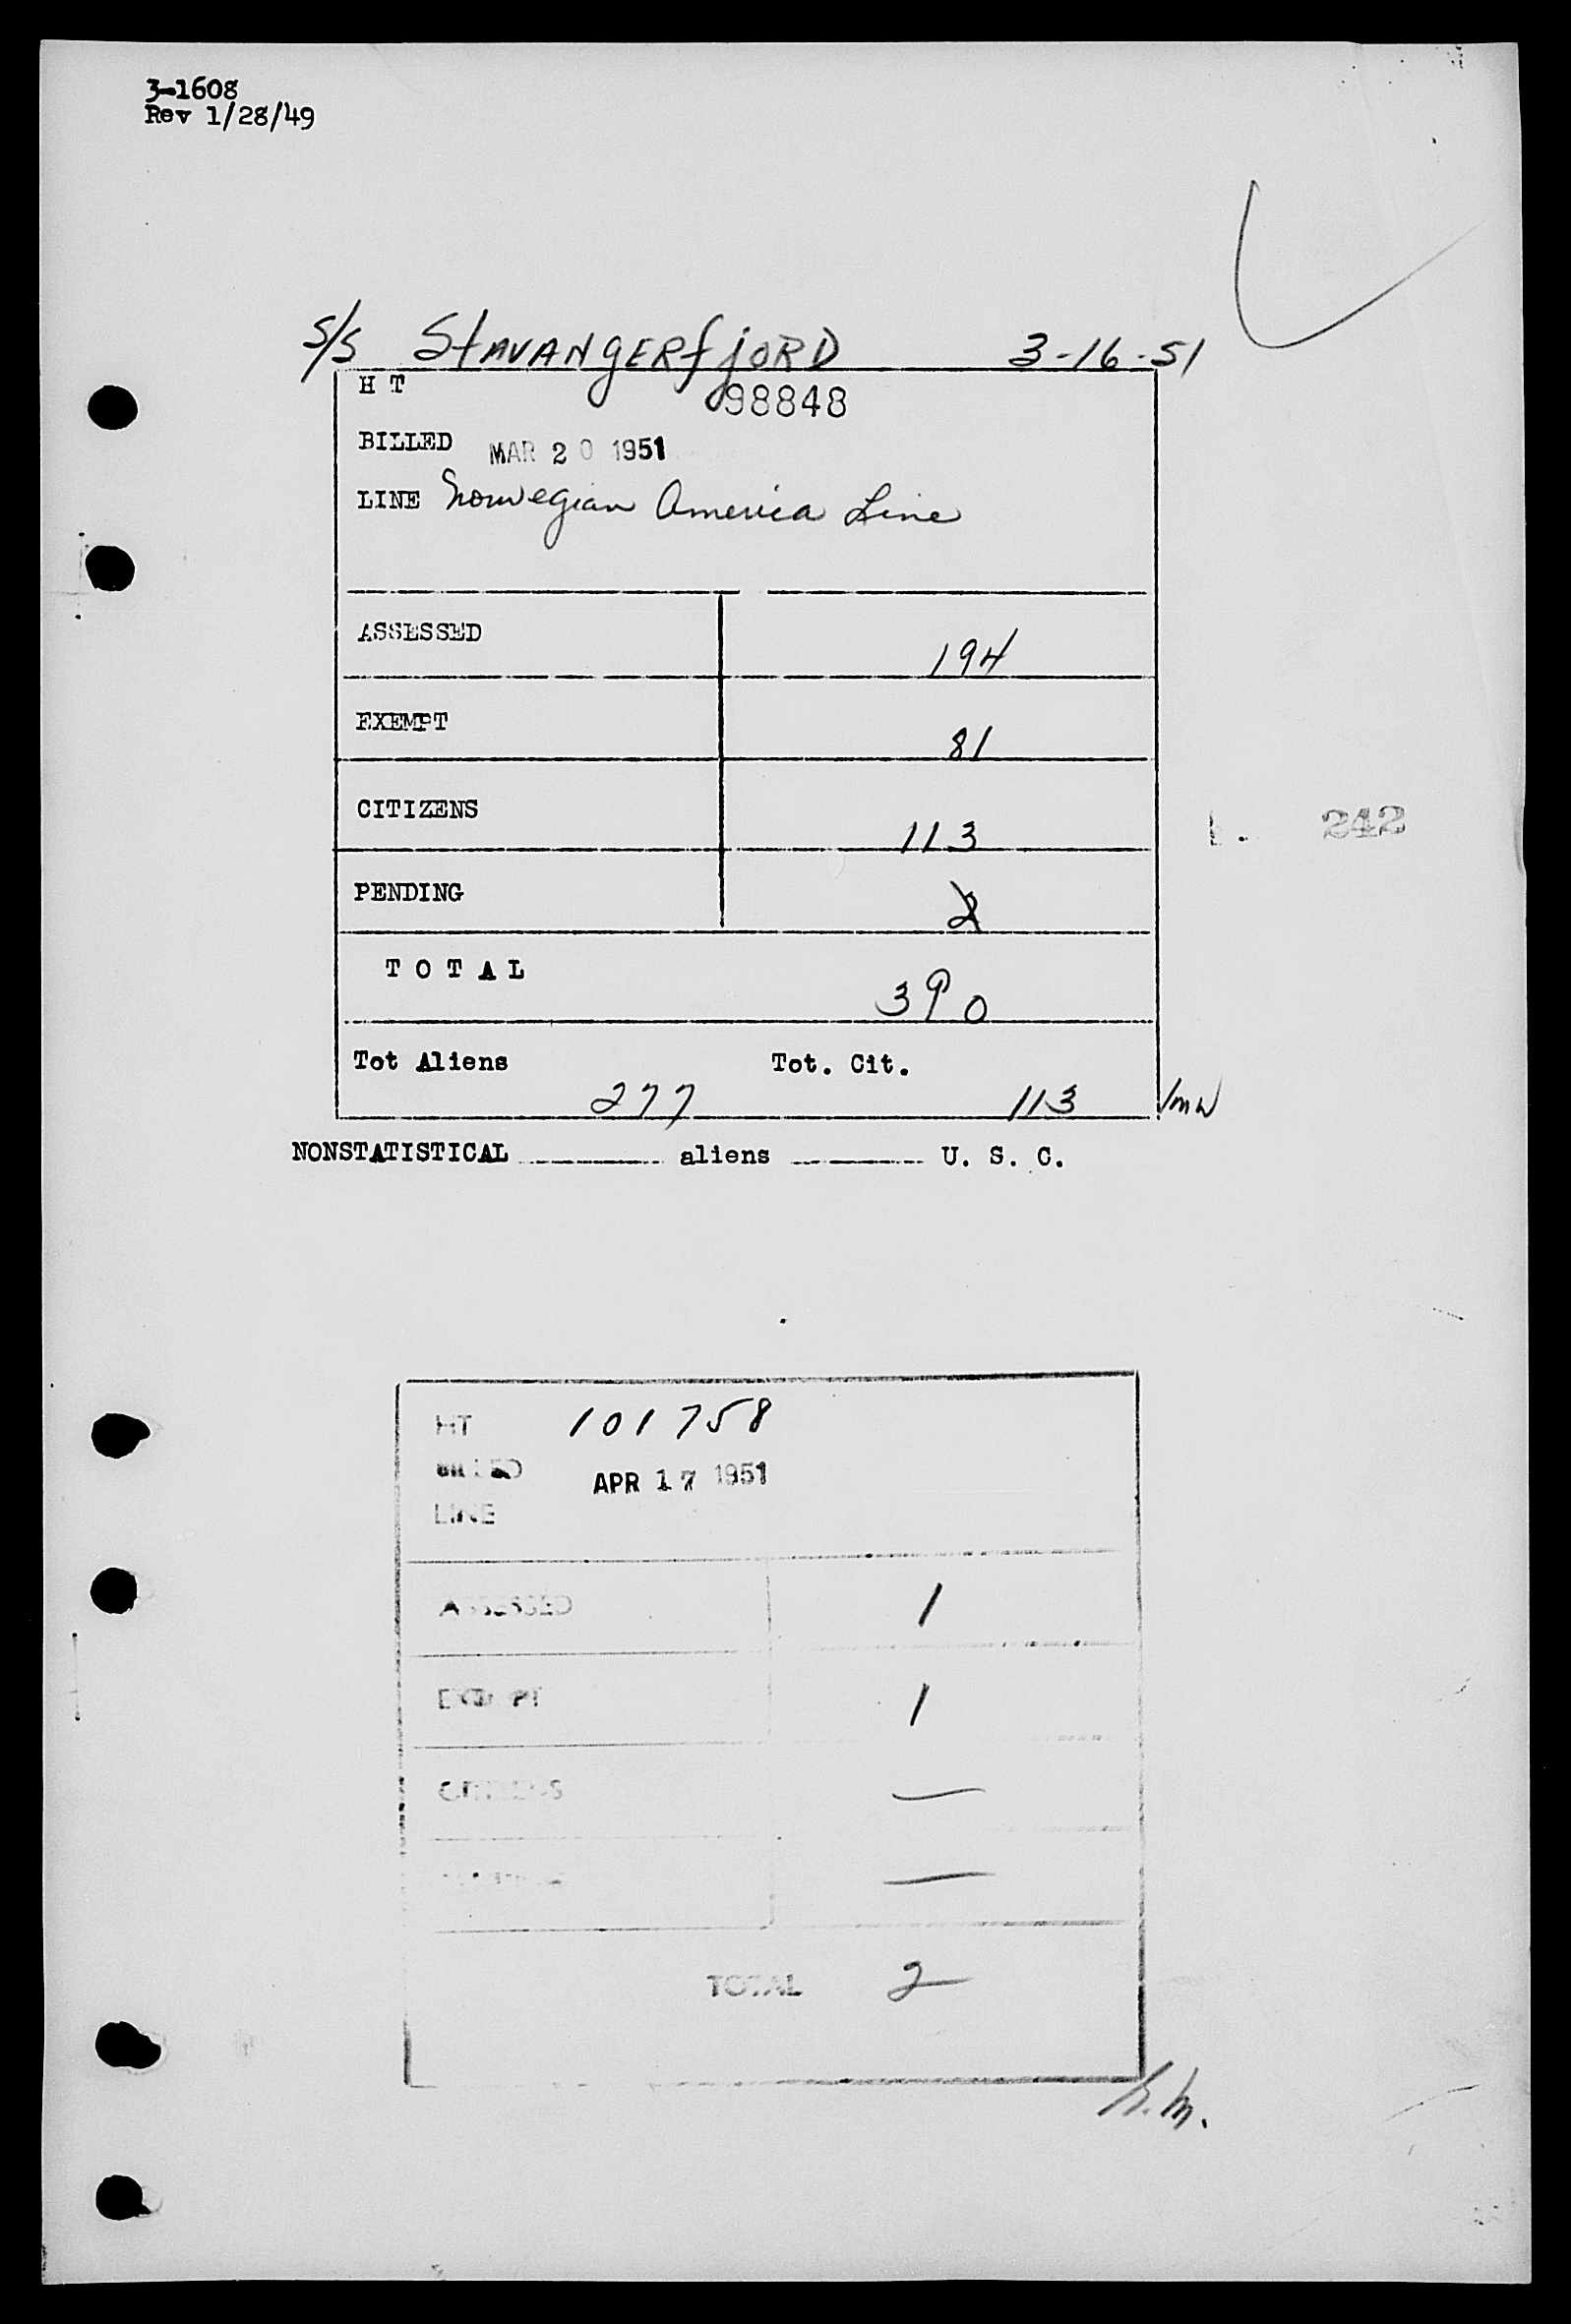 3-1608
Rev 1/28/49
S/S Stavangerfjord 3-16-51
H T 98848
BILLED MAR 20 1951
LINE Norwegian America Line
ASSESSED 194
EXEMPT 81
CITIZENS 113
242
PENDING 2
TOTAL 390
Tot Aliens Tot. Cit.
277 113 /mw
NONSTATISTICAL ______ aliens ______ U. S. C.
HT 101758
BILLED APR 17 1951
LINE
ASSESSED 1
EXEMPT 1
CITIZENS —
—
TOTAL 2